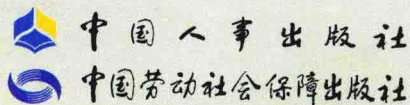 中国人事出版社
中国劳动社会保障出版社